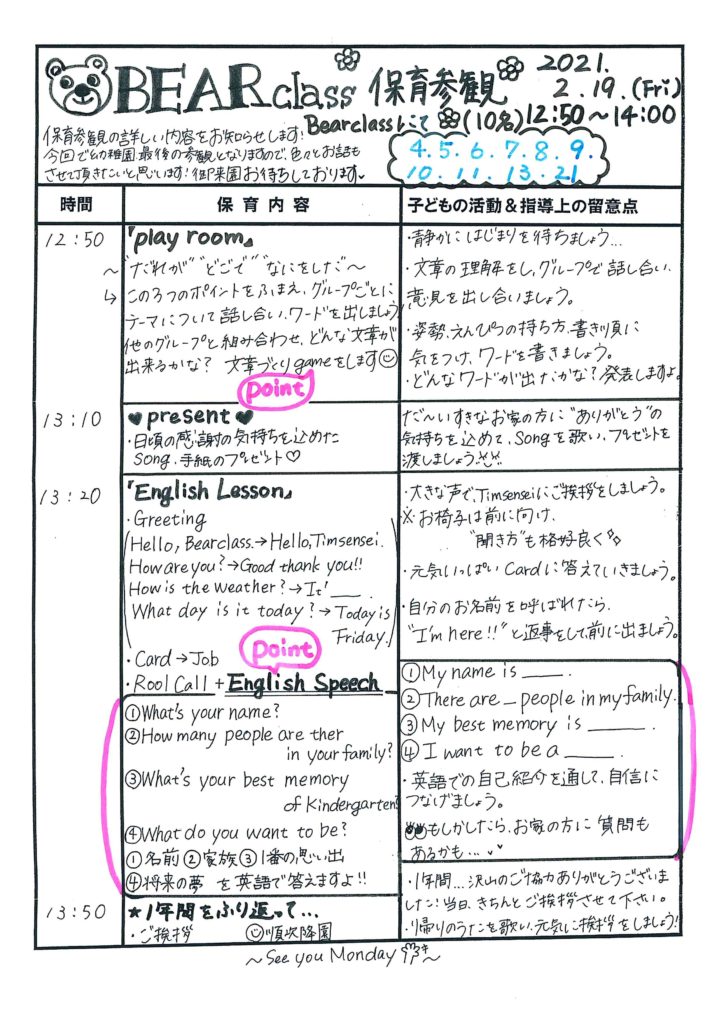 BEAR class 保育参観
2021.
2.19.(Fri)
Bearclassにて (10名) 12:50～14:00
保育参観の詳しい内容をお知らせします!
今回で幼稚園最後の参観となりますので、色々とお話も
させて頂きたいと思います!御来園お待ちしております
4.5.6.7.8.9.
10.11.13.21
時間
保育内容
子どもの活動&指導上の留意点
12:50
『play room』
～"だれが" "どこで" "なにをした"～
↳ この3つのポイントをふまえ、グループごとに
テーマについて話し合い、ワードを出しましょう!
他のグループと組み合わせ、どんな文章が
出来るかな? 文章づくりgameをします
point
・静かにはじまりを待ちましょう…
・文章の理解をし、グループで話し合い、
意見を出し合いましょう。
・姿勢、えんぴつの持ち方、書き順に
気をつけ、ワードを書きましょう。
・どんなワードが出たかな?発表しますよ。
13:10
♥present♥
・日頃の感謝の気持ちを込めた
Song、手紙のプレゼント♡
だ～いすきなお家の方に"ありがとう"の
気持ちを込めて、Songを歌い、プレゼントを
渡しましょう
13:20
『English Lesson』
・Greeting
Hello, Bearclass.→Hello,Timsensei.
How are you?→Good thank you!!
How is the weather?→It' ___.
What day is it today?→Today is
Friday.
・Card→Job
point
・Rool Call + English Speech
・大きな声でTimsenseiにご挨拶をしましょう。
※お椅子は前に向け、
"聞き方"も格好良く
・元気いっぱいCardに答えていきましょう。
・自分のお名前を呼ばれたら、
"I'm here!!"と返事をして前に出ましょう。
①What's your name?
②How many people are ther
in your family?
③What's your best memory
of Kindergarten?
④What do you want to be?
①名前 ②家族 ③1番の思い出
④将来の夢 を英語で答えますよ!!
①My name is ____.
②There are _ people in my family.
③My best memory is ______.
④I want to be a _____.
・英語での自己紹介を通して、自信に
つなげましょう。
もしかしたら、お家の方に質問も
あるかも…
13:50
★1年間をふり返って…
・ご挨拶 順次降園
・1年間…沢山のご協力ありがとうございま
した!当日、きちんとご挨拶させて下さい。
・帰りのうたを歌い、元気に挨拶をしましょう!
～See you Monday～